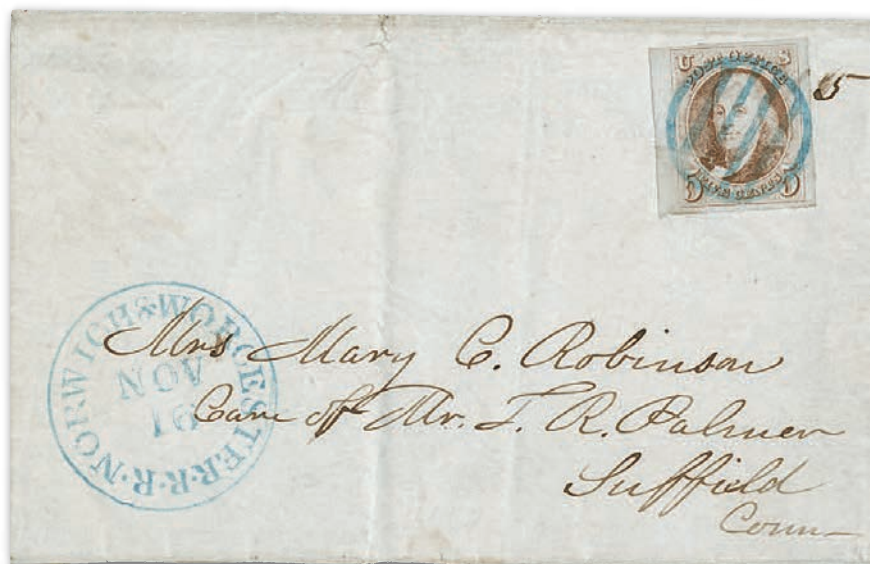 U S
POST OFFICE
5 FIVE CENTS 5
5
NORWICH & WORCESTER R.R.
NOV
Mrs Mary C. Robinson
Care of Mr. T. R. Palmer
Suffield
Conn